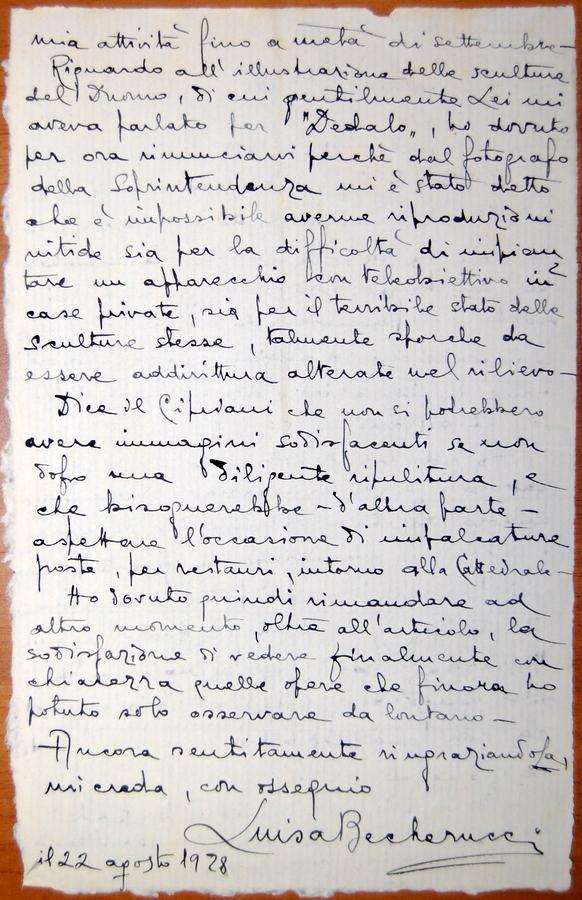 mia attività fino a metà di settembre –
Riguardo all'illustrazione delle sculture
del Duomo, di cui gentilmente Lei mi
aveva parlato per "Dedalo„, ho dovuto
per ora rinunciarvi perchè dal fotografo
della Soprintendenza mi è stato detto
che è impossibile averne riproduzioni
nitide sia per la difficoltà di impian
tare un apparecchio con teleobiettivo in
case private, sia per il terribile stato delle
sculture stesse, talmente sporche da
essere addirittura alterate nel rilievo –
Dice il Cipriani che non si potrebbero
avere immagini sodisfacenti se non
dopo una diligente ripulitura, e
che bisognerebbe – d'altra parte –
aspettare l'occasione di impalcature
poste, per restauri, intorno alla Cattedrale –
Ho dovuto quindi rimandare ad
altro momento, oltre all'articolo, la
sodisfazione di vedere finalmente con
chiarezza quelle opere che finora ho
potuto solo osservare da lontano –
Ancora sentitamente ringraziandola,
mi creda, con ossequio
Luisa Becherucci
il 22 agosto 1928